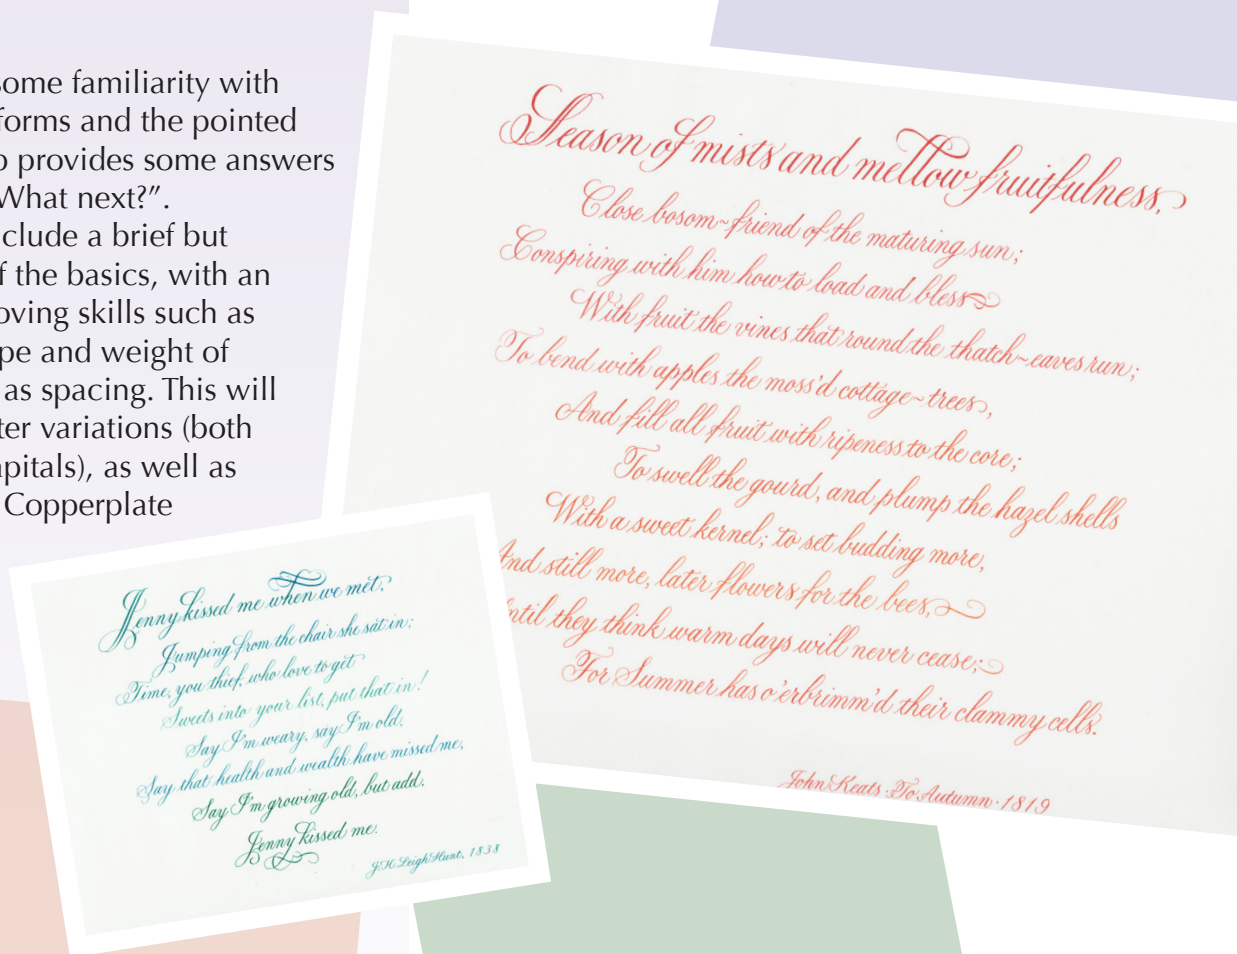 some familiarity with
forms and the pointed
provides some answers
What next?”.
clude a brief but
f the basics, with an
oving skills such as
pe and weight of
as spacing. This will
ter variations (both
apitals), as well as
Copperplate
Season of mists and mellow fruitfulness,
Close bosom-friend of the maturing sun;
Conspiring with him how to load and bless
With fruit the vines that round the thatch-eaves run;
To bend with apples the moss'd cottage-trees,
And fill all fruit with ripeness to the core;
To swell the gourd, and plump the hazel shells
With a sweet kernel; to set budding more,
And still more, later flowers for the bees,
ntil they think warm days will never cease;
For Summer has o'erbrimm'd their clammy cells.
John Keats · To Autumn · 1819
Jenny kissed me when we met,
Jumping from the chair she sat in;
Time, you thief, who love to get
Sweets into your list, put that in!
Say I'm weary, say I'm old,
Say that health and wealth have missed me,
Say I'm growing old, but add,
Jenny kissed me.
J.H. Leigh Hunt, 1838